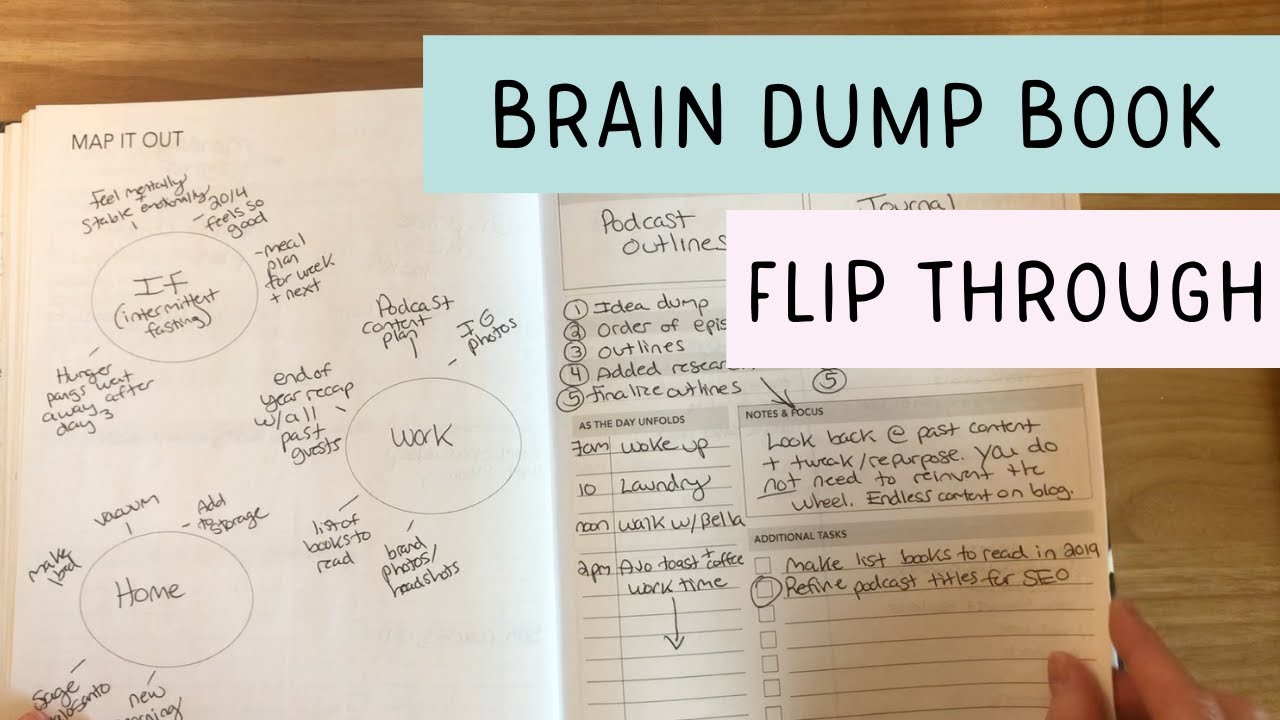 BRAIN DUMP BOOK
FLIP THROUGH
MAP IT OUT
Feel mentally
+
stable emotionally
- 2014
feels so
good
IF
(intermittent
fasting)
- meal
plan
for week
+ next
Hunger
pangs went
away after
day 3
Podcast
content
plan
IG
photos
end of
year recap
w/all
past
guests
Work
list of
books to
read
brand
photos/
headshots
vacuum
Add
to
storage
make
bed
Home
Sage
new
Podcast
outlines
Journal
① Idea dump
② Order of epis
③ outlines
④ Added research
⑤ Finalize outlines
⑤
AS THE DAY UNFOLDS
7am woke up
10 Laundry
noon walk w/Bella
2pm Avo toast + coffee
work time
NOTES & FOCUS
Look back @ past content
+ tweak/repurpose. You do
not need to reinvent the
wheel. Endless content on blog.
ADDITIONAL TASKS
make list books to read in 2019
Refine podcast titles for SEO